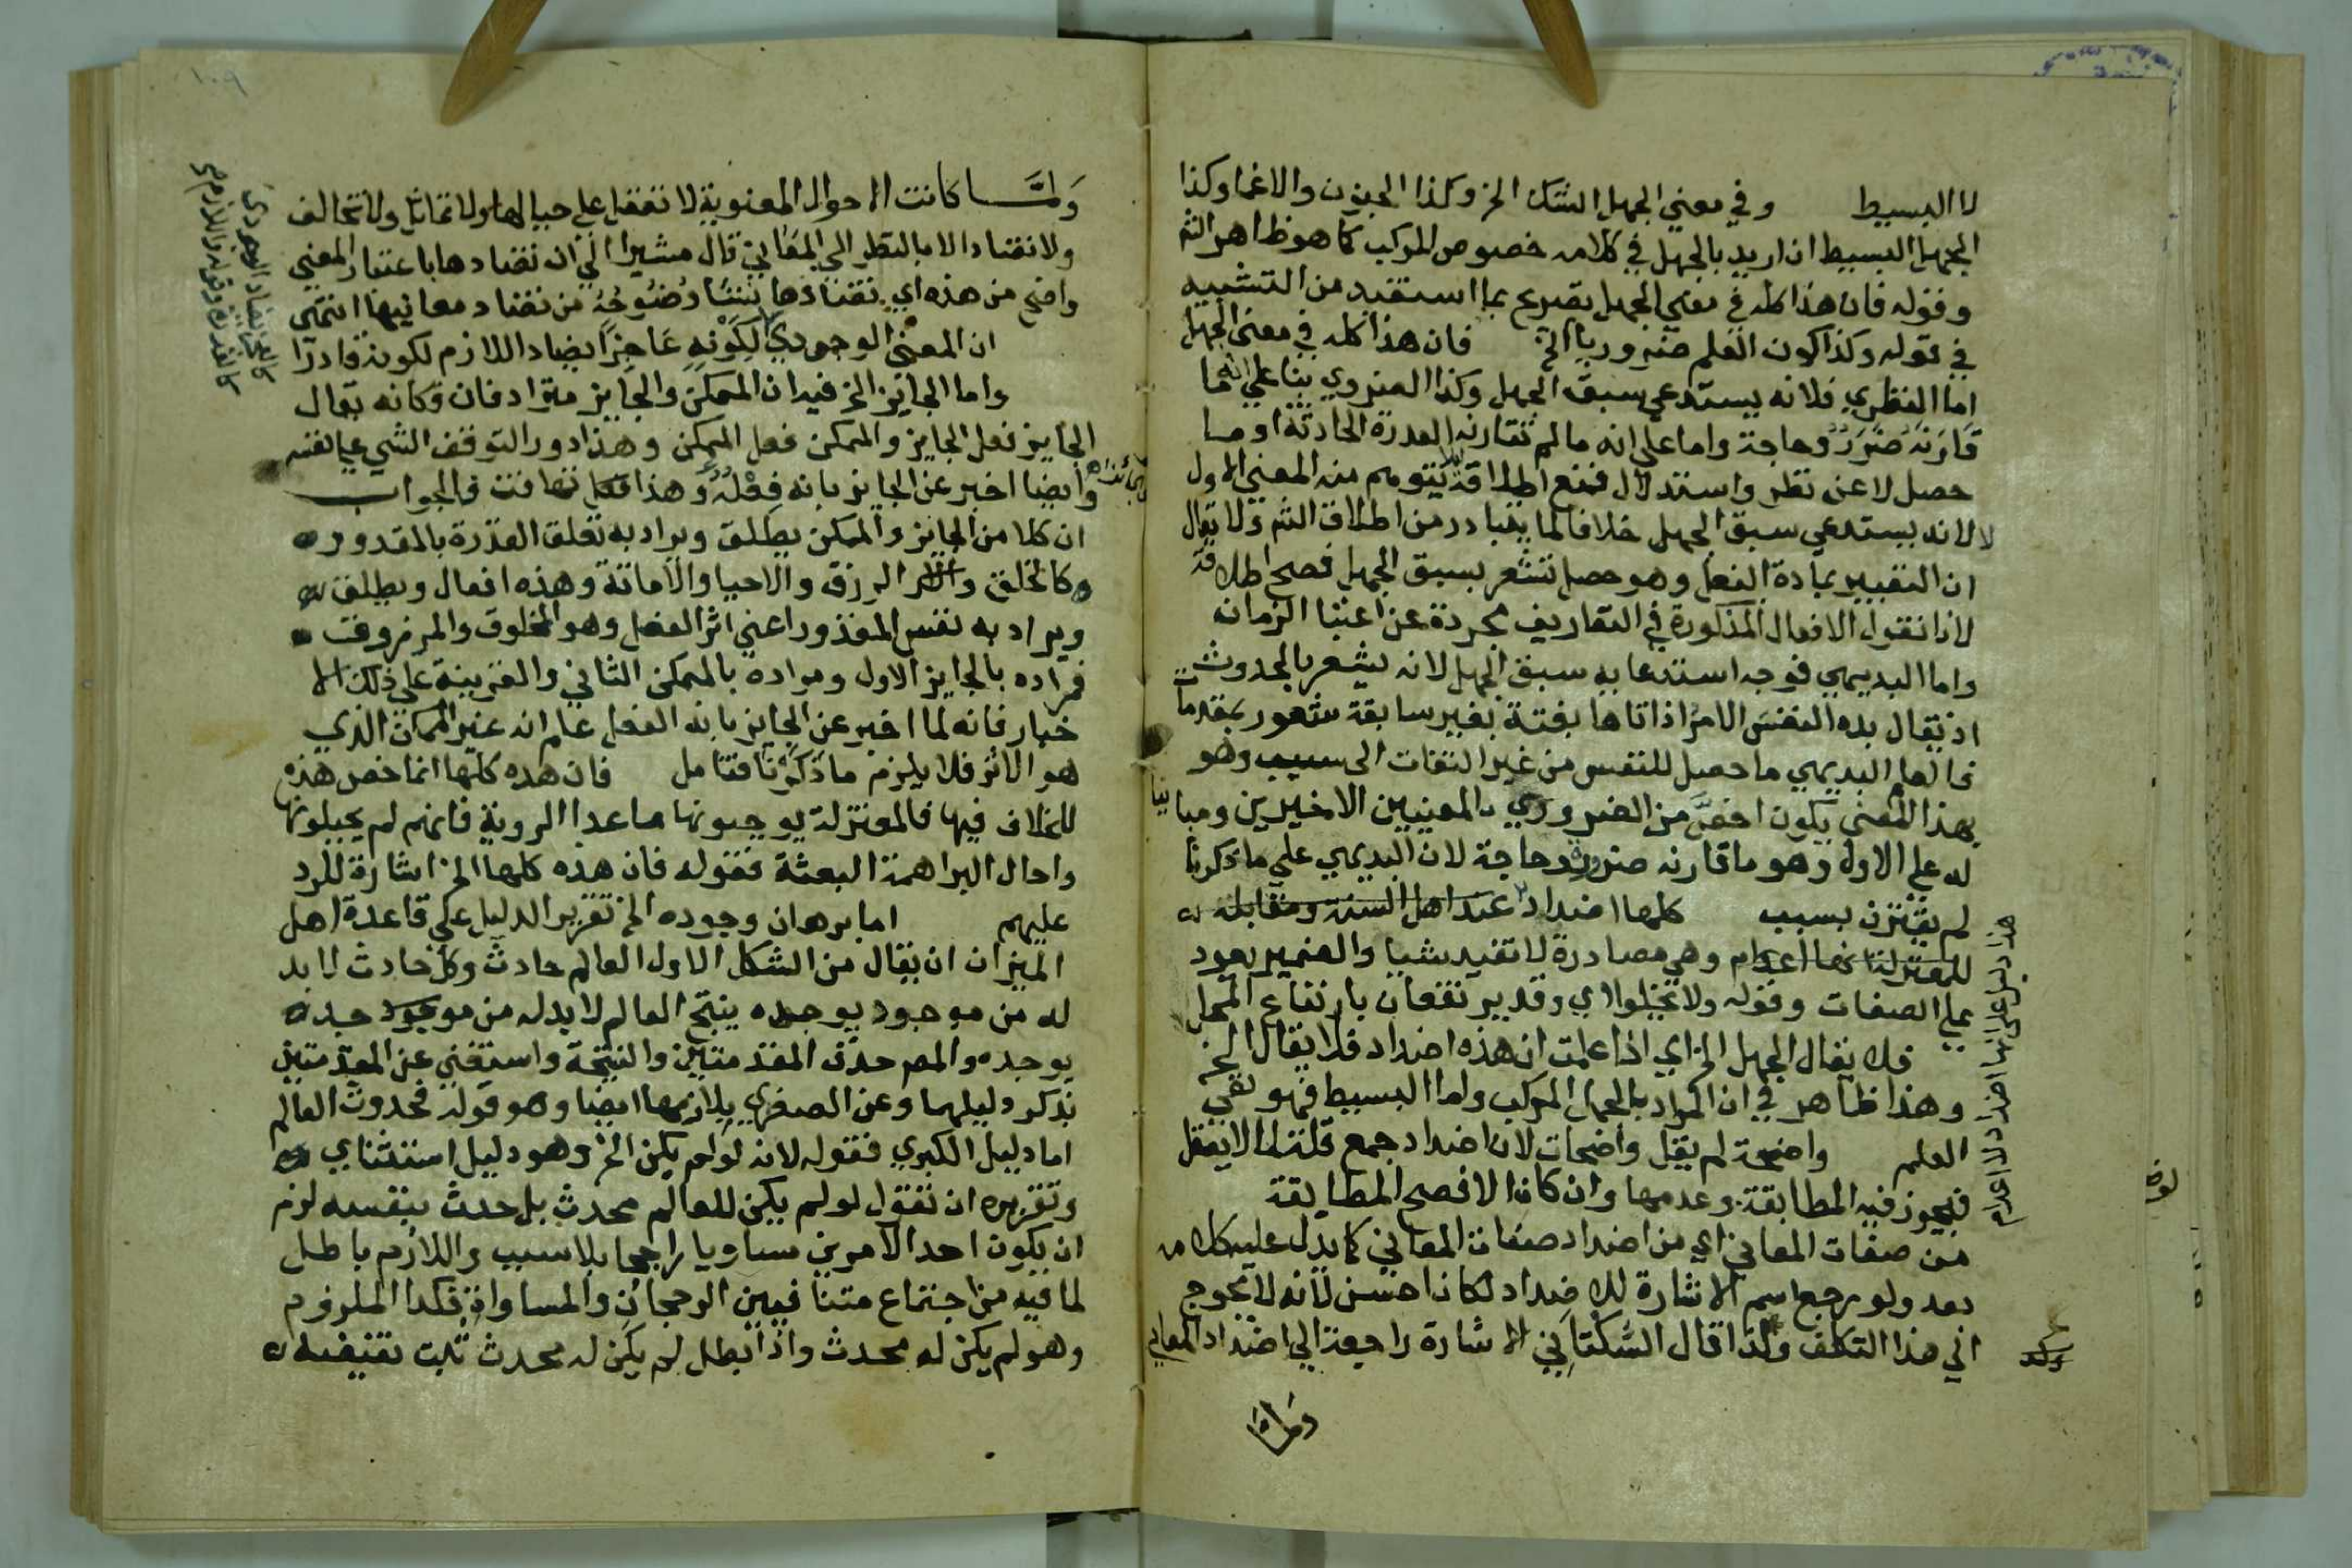 لا البسيط وفي معني الجهل الشك الخ وكذا الجنون والاغما وكذا
الجهل البسيط ان اريد بالجهل في كلامه خصوص المركب كما هو ظاهر الثم
وقوله فان هذا كله في معني الجهل تصريح بما استفيد من التشبيه
في قوله وكذا كون العلم ضروريا الخ فان هذا كله في معني الجهل
اما النظري فلانه يستدعي سبق الجهل وكذا الضروري بنا علي انه ما
قارنه ضرر وحاجة واما علي انه مالم تقارنه القدرة الحادثة او ما
حصل لا عن نظر واستدلال فمنع اطلاقه ليلا يتوهم منه المعني الاول
لا لانه يستدعي سبق الجهل خلافا لما يتبادر من اطلاق الثم ولا يقال
ان التعبير بمادة الفعل وهو حصل تشعر بسبق الجهل فصح اطلاقه
لانا نقول الافعال المذكورة في التعاريف مجردة عن اعتبا الزمان
واما البديهي فوجه استدعايه سبق الجهل لانه يشعر بالحدوث
اذ يقال بده النفس الامر اذا اتاها بغتة بغير سابقة شعور بمقدمات
فالعلم البديهي ما حصل للنفس من غير التفات الي سبب وهو
بهذا المعني يكون اخص من الضروري بالمعنيين الاخيرين ومباينا
له علي الاول وهو ما قارنه ضرورة وحاجة لان البديهي علي ما ذكرنا
لم يقترن بسبب كلها اضداد عند اهل السنة ومقابله
للمعتزلة انها اعدام وهي مصادرة لا تفيد شيا والضمير يعود
علي الصفات وقوله ولا تخلوا اي وقد يرتفعان بارتفاع المحل
فلا يقال الجهل الخ اي اذا علمت ان هذه اضداد فلا يقال الخ
وهذا ظاهر في ان المراد بالجهل المركب واما البسيط فهو نفي
العلم واضحة لم يقل واضحات لان اضداد جمع قلة لما لا يعقل
فيجوز فيه المطابقة وعدمها وان كان الافصح المطابقة
من صفات المعاني اي من اضداد صفات المعاني كما يدل عليه كلامه
بعد ولو رجع اسم الاشارة للاضداد لكان احسن لانه لا يحوج
الي هذا التكلف ولذا قال السكتاني الاشارة راجعة الي اضداد المعاني
هذا دليل علي انها اضداد لا اعدام
ولما كانت الاحوال المعنوية لا تعقل علي حيالها ولا تماثل ولا تخالف
ولا تضاد الا بالنظر الي المعاني قال مشيرا الي ان تضادها باعتبار المعني
واضح من هذه اي تضادها بنشا وضوحه من تضاد معانيها انتهي
ان المعني الوجودي لكونه عاجزا يضاد اللازم لكونه قادرا
واما الجايز الخ فيه ان الممكن والجايز مترادفان وكانه يقال
الجايز فعل الجايز والممكن فعل الممكن وهذا دور التوقف الشي علي نفسه
وايضا اخبر عن الجايز بانه فعل وهذا تهافت فالجواب
ان كلا من الجايز والممكن يطلق ويراد به تعلق القدرة بالمقدور
كالخلق والرزق والاحيا والاماتة وهذه افعال ويطلق
ويراد به نفس المقدور اعني اثر الفعل وهو المخلوق والمرزوق
فمراده بالجايز الاول ومراده بالممكن الثاني والقرينة علي ذلك الا
خبار فانه لما اخبر عن الجايز بانه الفعل علم انه غير الممكن الذي
هو الاثر فلا يلزم ما ذكرنا فتامل فان هده كلها انما خص هذه
للخلاف فيها فالمعتزلة يوجبونها ما عدا الروية فانهم لم يحيلونها
واحال البراهمة البعثة فقوله فان هذه كلها الخ اشارة للرد
عليهم اما برهان وجوده الخ تقرير الدليل علي قاعدة اهل
الميزان ان يقال من الشكل الاول العالم حادث وكل حادث لا بد
له من موجود يوجده ينتج العالم لا بد له من موجود
يوجده والمص حذف المقدمتين والنتيجة واستغني عن المقدمتين
بذكر دليلهما وعن الصغري بلازمها ايضا وهو قوله فحدوث العالم
اما دليل الكبري فقوله لانه لو لم يكن الخ وهو دليل استثناي
وتقريره ان تقول لو لم يكن للعالم محدث بل حدث بنفسه لزم
ان يكون احد الامرين مساويا راجحا بلا سبب واللازم باطل
لما فيه من اجتماع متنافيين الرجحان والمساواة فكدا الملزوم
وهو لم يكن له محدث واذا بطل لم يكن له محدث ثبت نقيضه